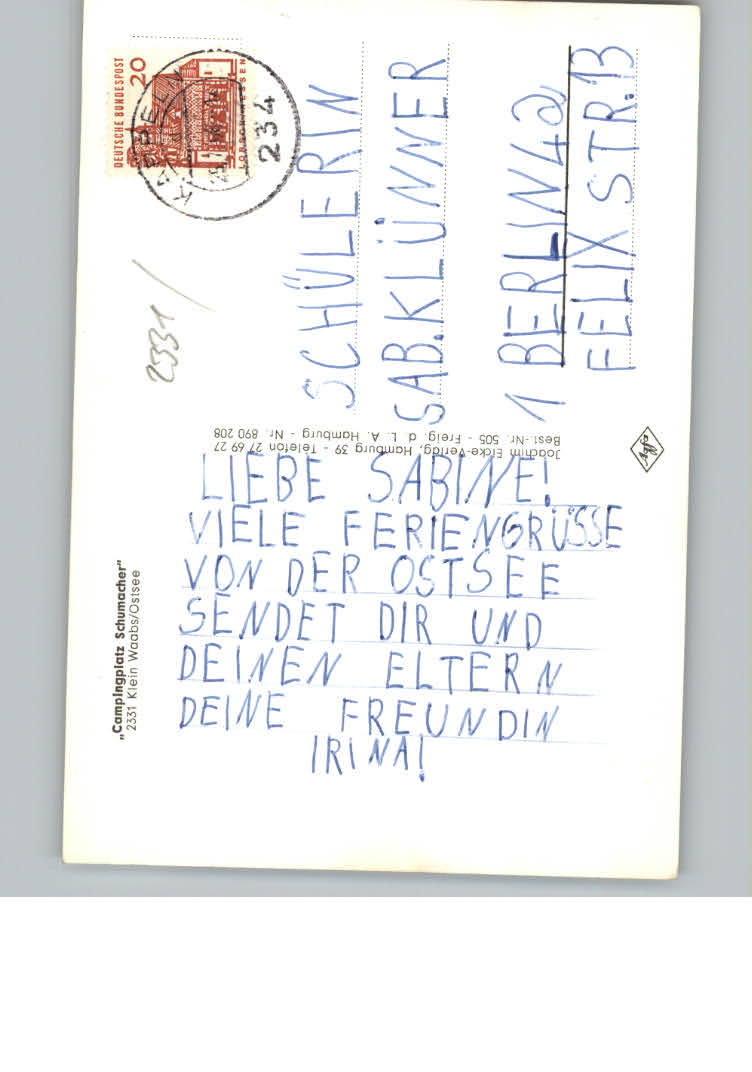 „Campingplatz Schumacher"
2331 Klein Waabs/Ostsee
LIEBE SABINE!
VIELE FERIENGRÜSSE
VON DER OSTSEE
SENDET DIR UND
DEINEN ELTERN
DEINE FREUNDIN
IRINA!
Joachim Eicke-Verlag, Hamburg 39 - Telefon 27 69 27
Best.-Nr. 505 - Freig. d. L. A. Hamburg - Nr. 890 208
Agfa
2331/
DEUTSCHE BUNDESPOST
20
LORSCH/HESSEN
KAPPELN
234
SCHÜLERIN
SAB.KLÜNNER
1 BERLIN 42
FELIX STR.13